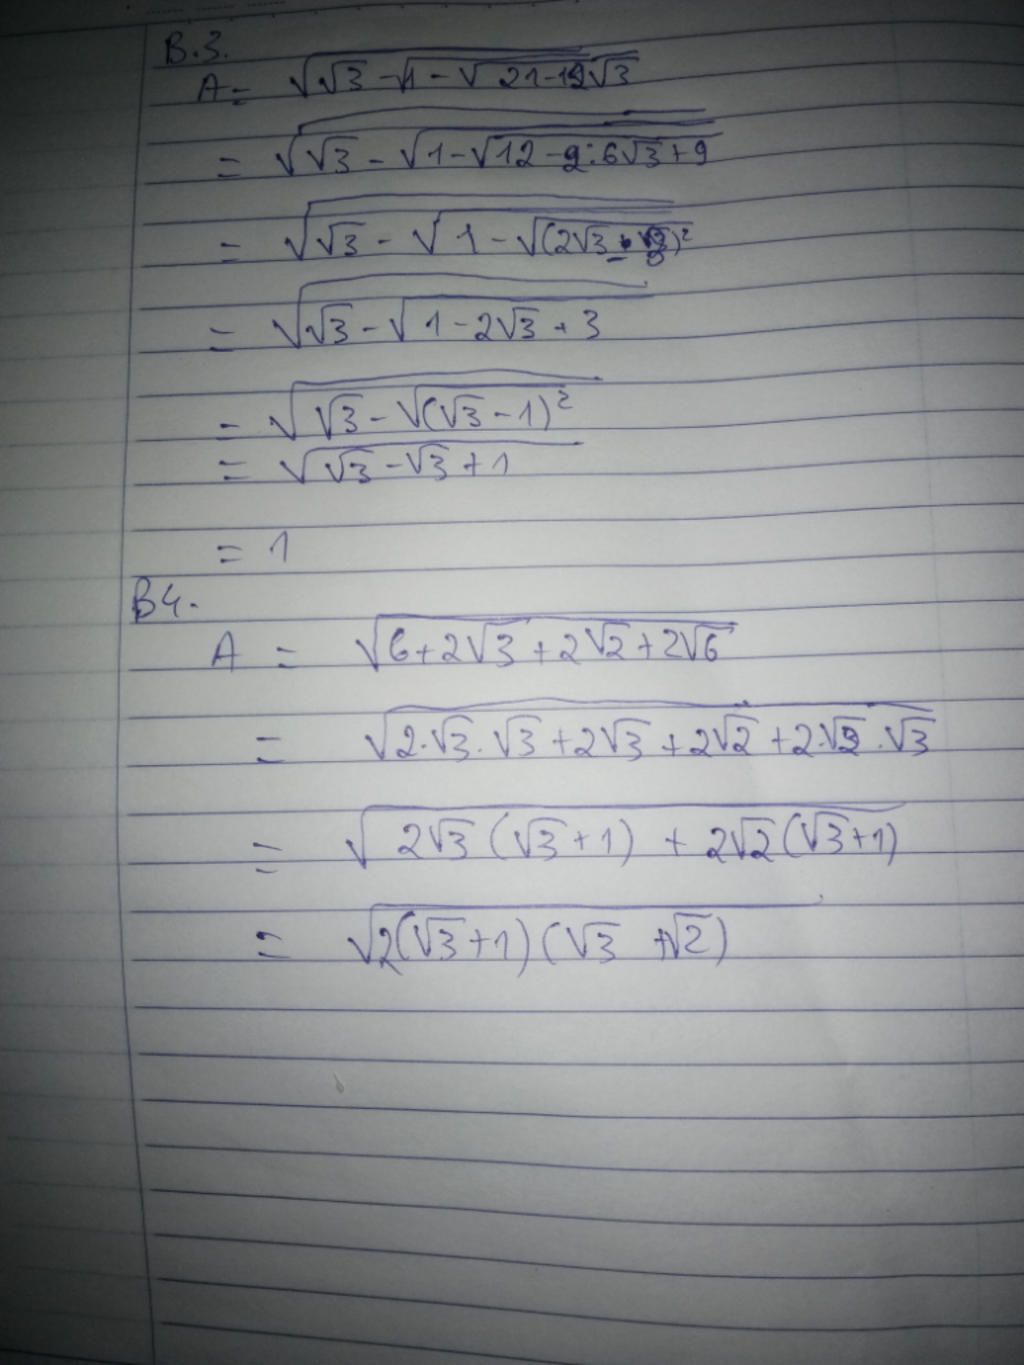 B.3.
A = √(√3 - √(1 - √(21-12√3)))
= √(√3 - √(1-√(12-2.6√3+9)))
= √(√3 - √(1-√((2√3-3)²)))
= √(√3 - √(1-2√3+3))
= √(√3 - √((√3-1)²))
= √(√3-√3+1)
= 1
B4.
A = √(6+2√3+2√2+2√6)
= √(2.√3.√3+2√3+2√2+2.√2.√3)
= √(2√3(√3+1) + 2√2(√3+1))
= √(2(√3+1)(√3 +√2))